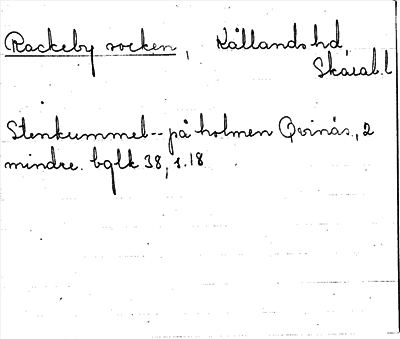 Rackeby socken, Kållands hd,
Skarab. l
Stenkummel -- på holmen Qvinås, 2
mindre. bglk 38, s. 18